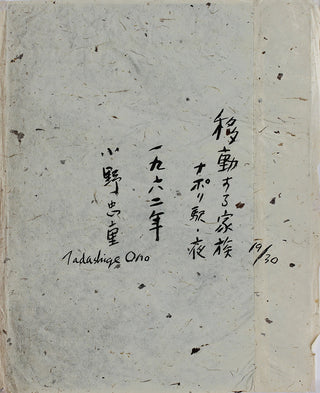 移動する家族
ナポリ駅・夜
一九六二年
小野忠重
Tadashige Ono
19/30